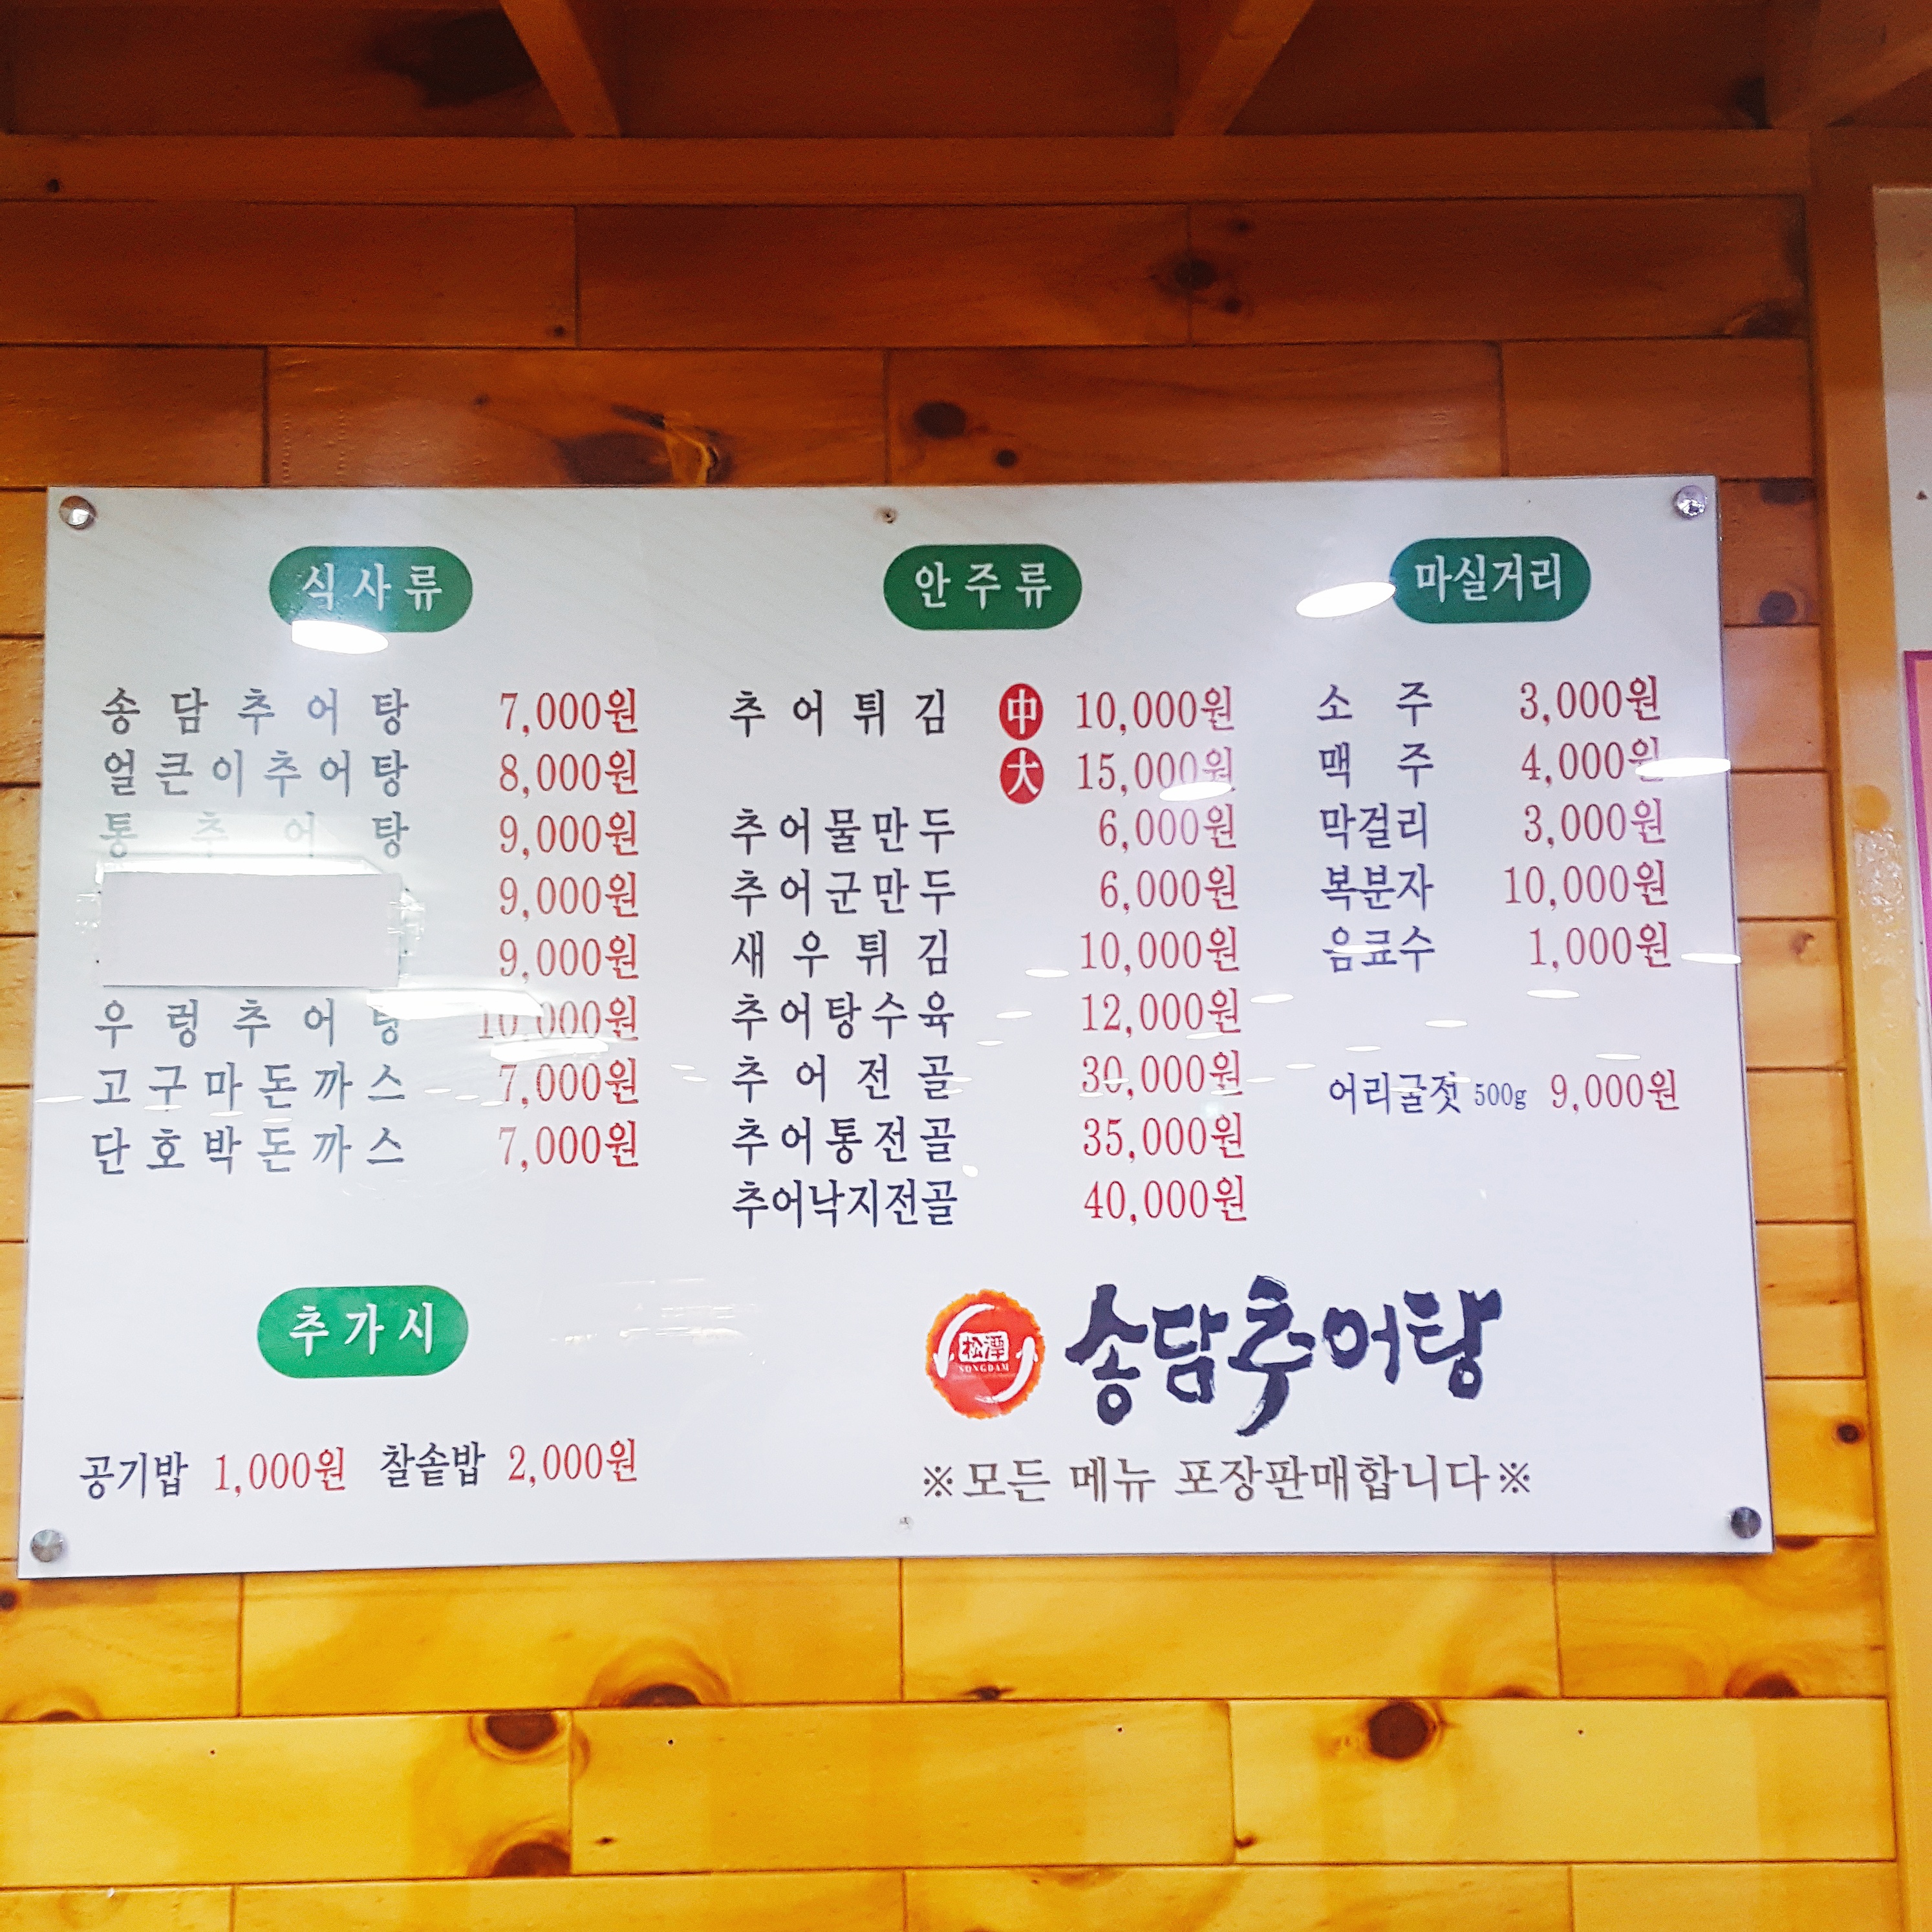 식사류
송담추어탕 7,000원
얼큰이추어탕 8,000원
통추어탕 9,000원
9,000원
9,000원
우렁추어탕 10,000원
고구마돈까스 7,000원
단호박돈까스 7,000원
추가시
공기밥 1,000원 찰솥밥 2,000원
안주류
추어튀김 中 10,000원
大 15,000원
추어물만두 6,000원
추어군만두 6,000원
새우튀김 10,000원
추어탕수육 12,000원
추어전골 30,000원
추어통전골 35,000원
추어낙지전골 40,000원
마실거리
소주 3,000원
맥주 4,000원
막걸리 3,000원
복분자 10,000원
음료수 1,000원
어리굴젓 500g 9,000원
松潭
SONGDAM
송담추어탕
※모든 메뉴 포장판매합니다※